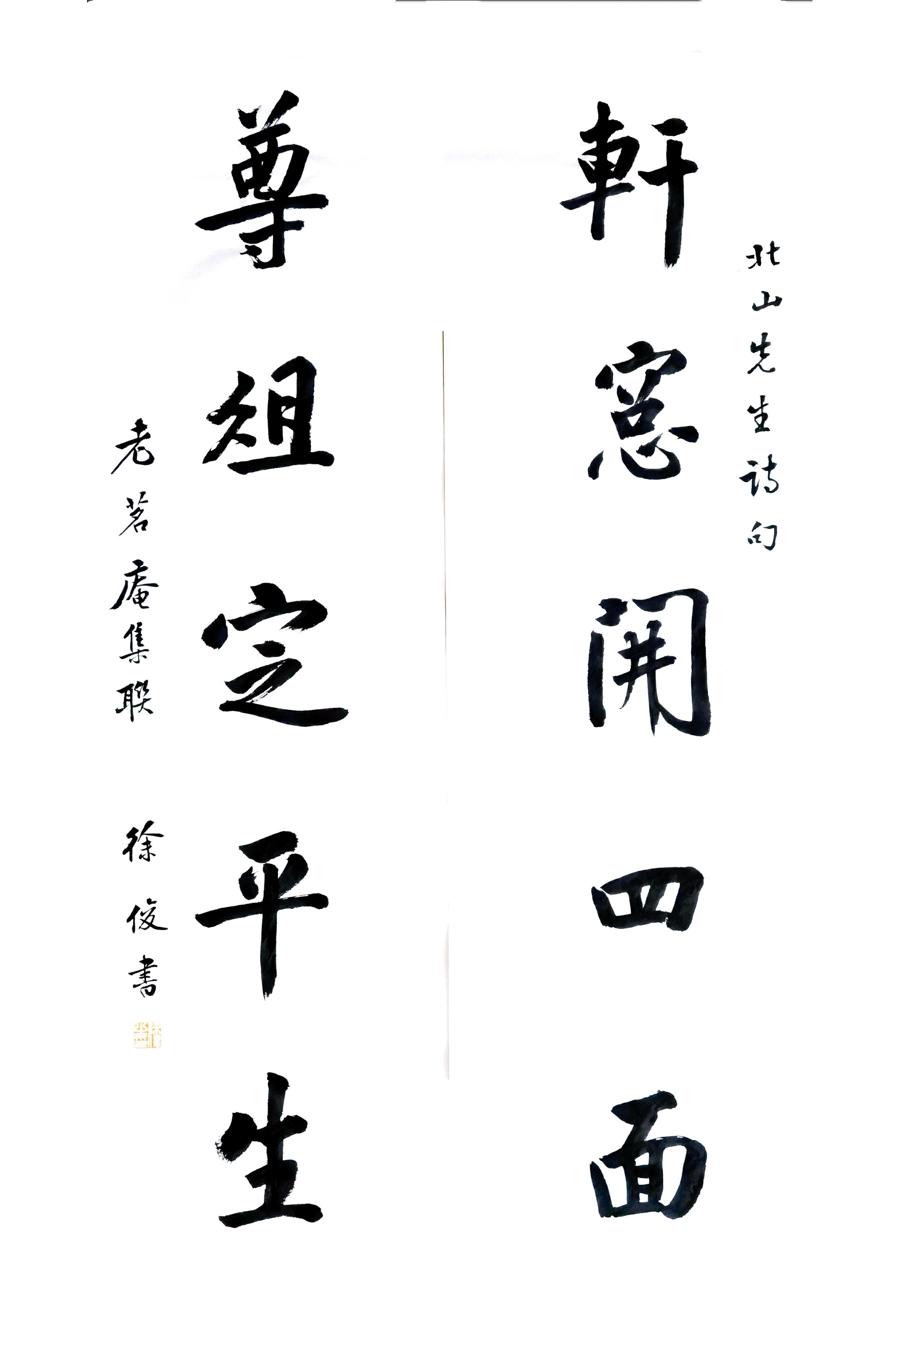 北山先生诗句
軒窓開四面
尊俎定平生
老茗庵集聯
徐俊書